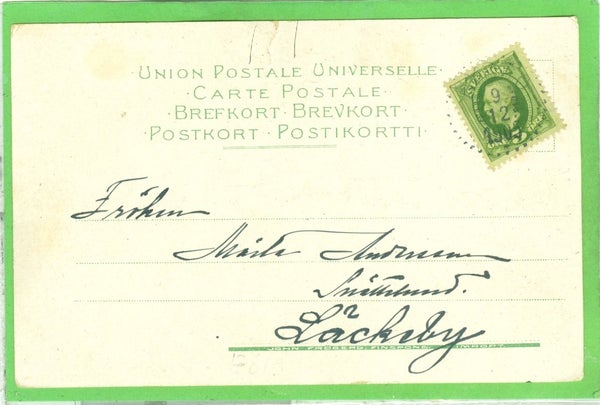 · UNION POSTALE UNIVERSELLE ·
· CARTE POSTALE ·
· BREFKORT · BREVKORT ·
· POSTKORT · POSTIKORTTI ·
SVERIGE
9
12
Fröken
Märta Andersson
Läckeby
JOHN FRÖBERG, FINSPONG. IMPORT.